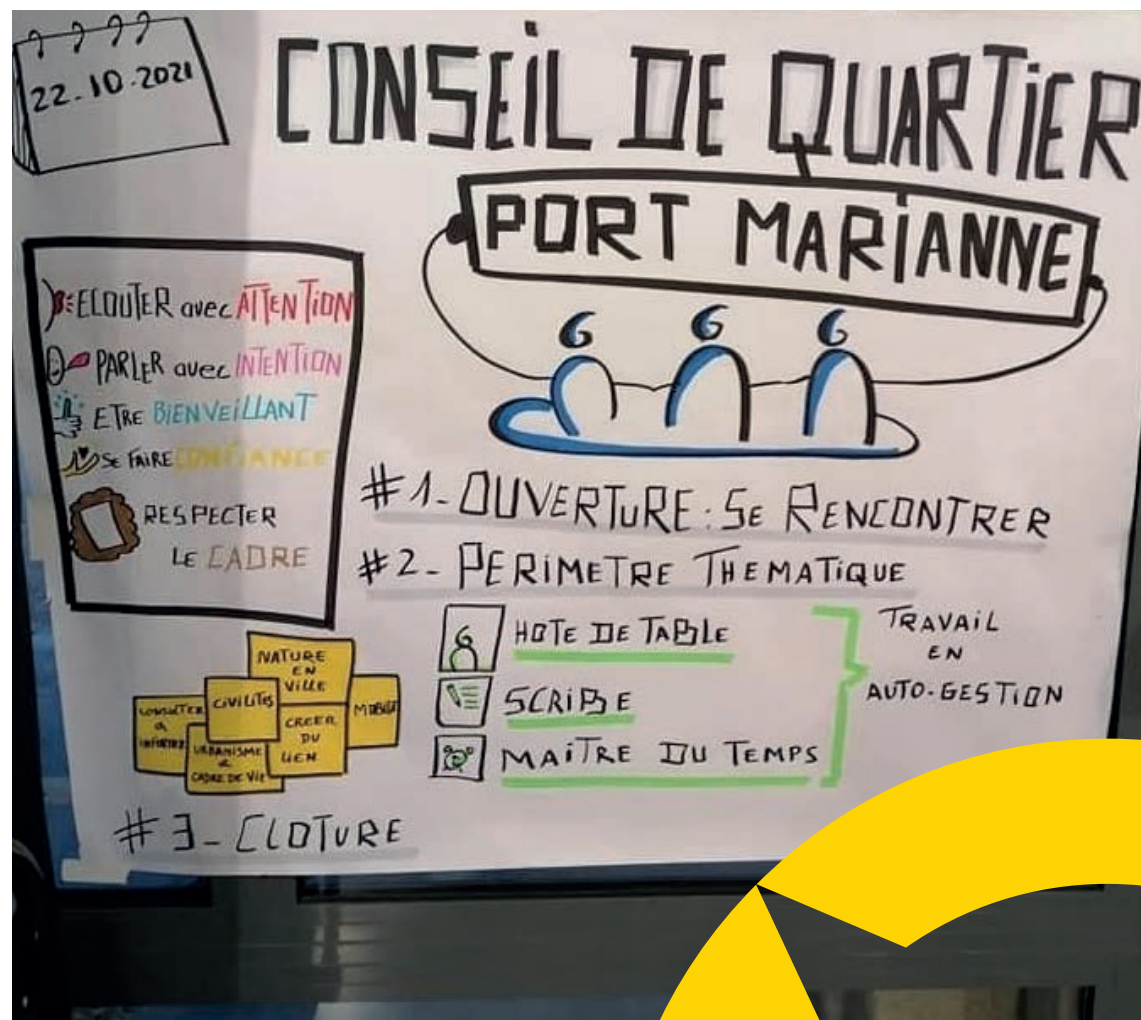 22.10.2021
CONSEIL DE QUARTIER
PORT MARIANNE
ECOUTER avec ATTENTION
PARLER avec INTENTION
ETRE BIENVEILLANT
SE FAIRE CONFIANCE
RESPECTER
LE CADRE
#1-OUVERTURE: SE RENCONTRER
#2-PERIMETRE THEMATIQUE
HOTE DE TABLE
SCRIBE
MAÎTRE DU TEMPS
TRAVAIL
EN
AUTO-GESTION
NATURE
EN
VILLE
CONSULTER
&
INFORMER
CIVILITES
CREER
DU
LIEN
URBANISME
&
CADRE DE VIE
#3-CLOTURE